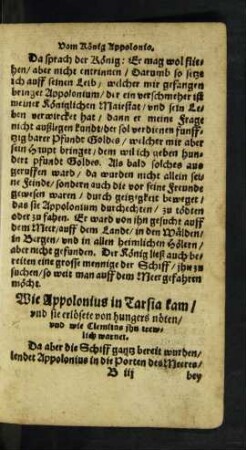 Vom König Appolonio.
Da sprach der König: Er mag wol flie-
hen/ aber nicht entrinnen/ Darumb so setze
ich auff seinen Leib/ welcher mir gefangen
bringet Appolonium/ der ein verschmeher ist
meiner Königlichen Maiestat/ und sein Le-
ben verwircket hat/ dann er meine Frage
nicht außlegen kundt/ der sol verdienen funff-
tzig barer Pfundt Goldes/ welcher mir aber
sein Haupt bringet/ dem wil ich geben hun-
dert pfundt Goldes. Als bald solches aus
geruffen ward/ da wurden nicht allein sei-
ne Feinde/ sondern auch die vor seine Freunde
gewesen waren/ durch geitzigkeit beweget/
das sie Appolonium durchechten/ zu tödten
oder zu fahen. Er ward von ihn gesucht auff
dem Meer/ auff dem Lande/ in den Wälden/
in Bergen/ und in allen heimlichen Hölern/
aber nicht gefunden. Der König ließ auch be-
reiten eine grosse mennige der Schiff/ jhn zu
suchen/ so weit man auff dem Meer gefahren
möcht.
Wie Appolonius in Tarsia kam/
und sie erlösete von hungers nöten/
und wie Clemitus jhn trew-
lich warnet.
Da aber die Schiff gantz bereit wurden/
lendet Appolonius in die Porten des Meeres/
B iij
bey